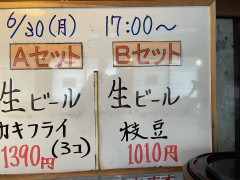 6/30(月) 17:00～
Aセット
生ビール
カキフライ
(3コ)
1390円
Bセット
生ビール
枝豆
1010円